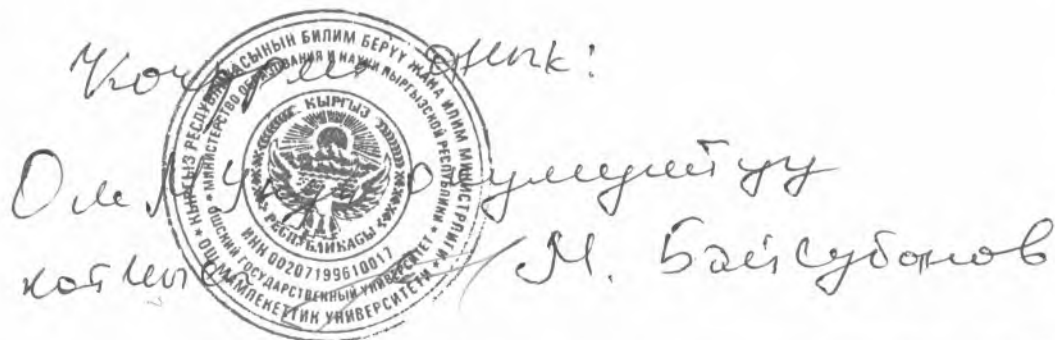 Көчүрмө анык:
ОшМУнун окумуштуу
катчысы М. Байсубанов
КЫРГЫЗ РЕСПУБЛИКАСЫНЫН БИЛИМ БЕРҮҮ ЖАНА ИЛИМ МИНИСТРЛИГИ
ОШ МАМЛЕКЕТТИК УНИВЕРСИТЕТИ
МИНИСТЕРСТВО ОБРАЗОВАНИЯ И НАУКИ КЫРГЫЗСКОЙ РЕСПУБЛИКИ
ОШСКИЙ ГОСУДАРСТВЕННЫЙ УНИВЕРСИТЕТ
КЫРГЫЗ
РЕСПУБЛИКАСЫ
ИНН 00207199610017